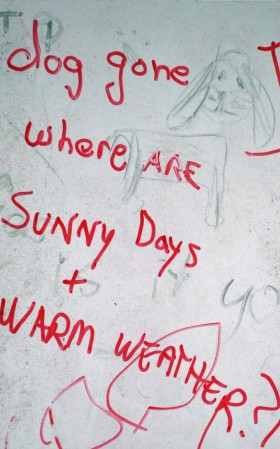 dog gone
where ARE
SUNNY Days
+
WARM WEATHER?